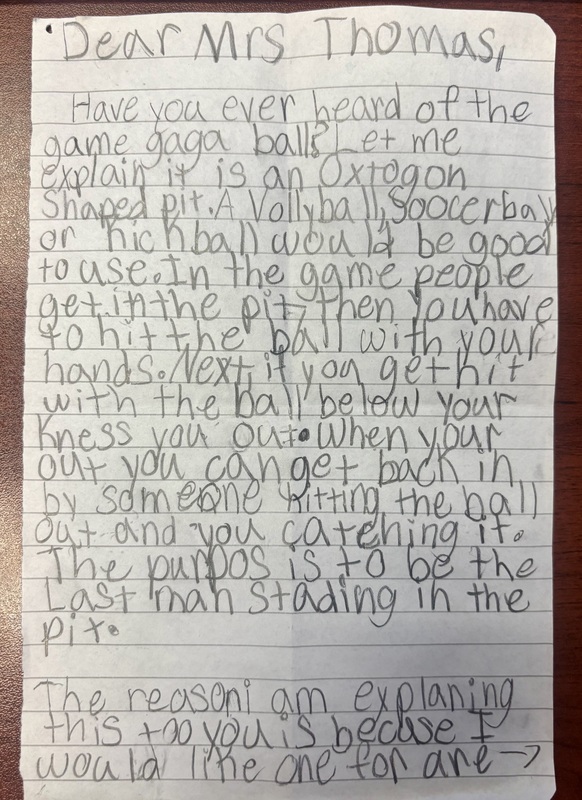 Dear Mrs Thomas,
Have you ever heard of the
game gaga ball? Let me
explain it is an Oxtogon
Shaped pit. A Vollyball, Soocerball
or kickball would be good
to use. In the game people
get in the pit, Then you have
to hit the ball with your
hands. Next, if you get hit
with the ball below your
kness you out. When your
out you can get back in
by someone hitting the ball
out and you catching it.
The purpos is to be the
Last man stading in the
pit.
The reason i am explaning
this too you is becuse I
would like one for are →